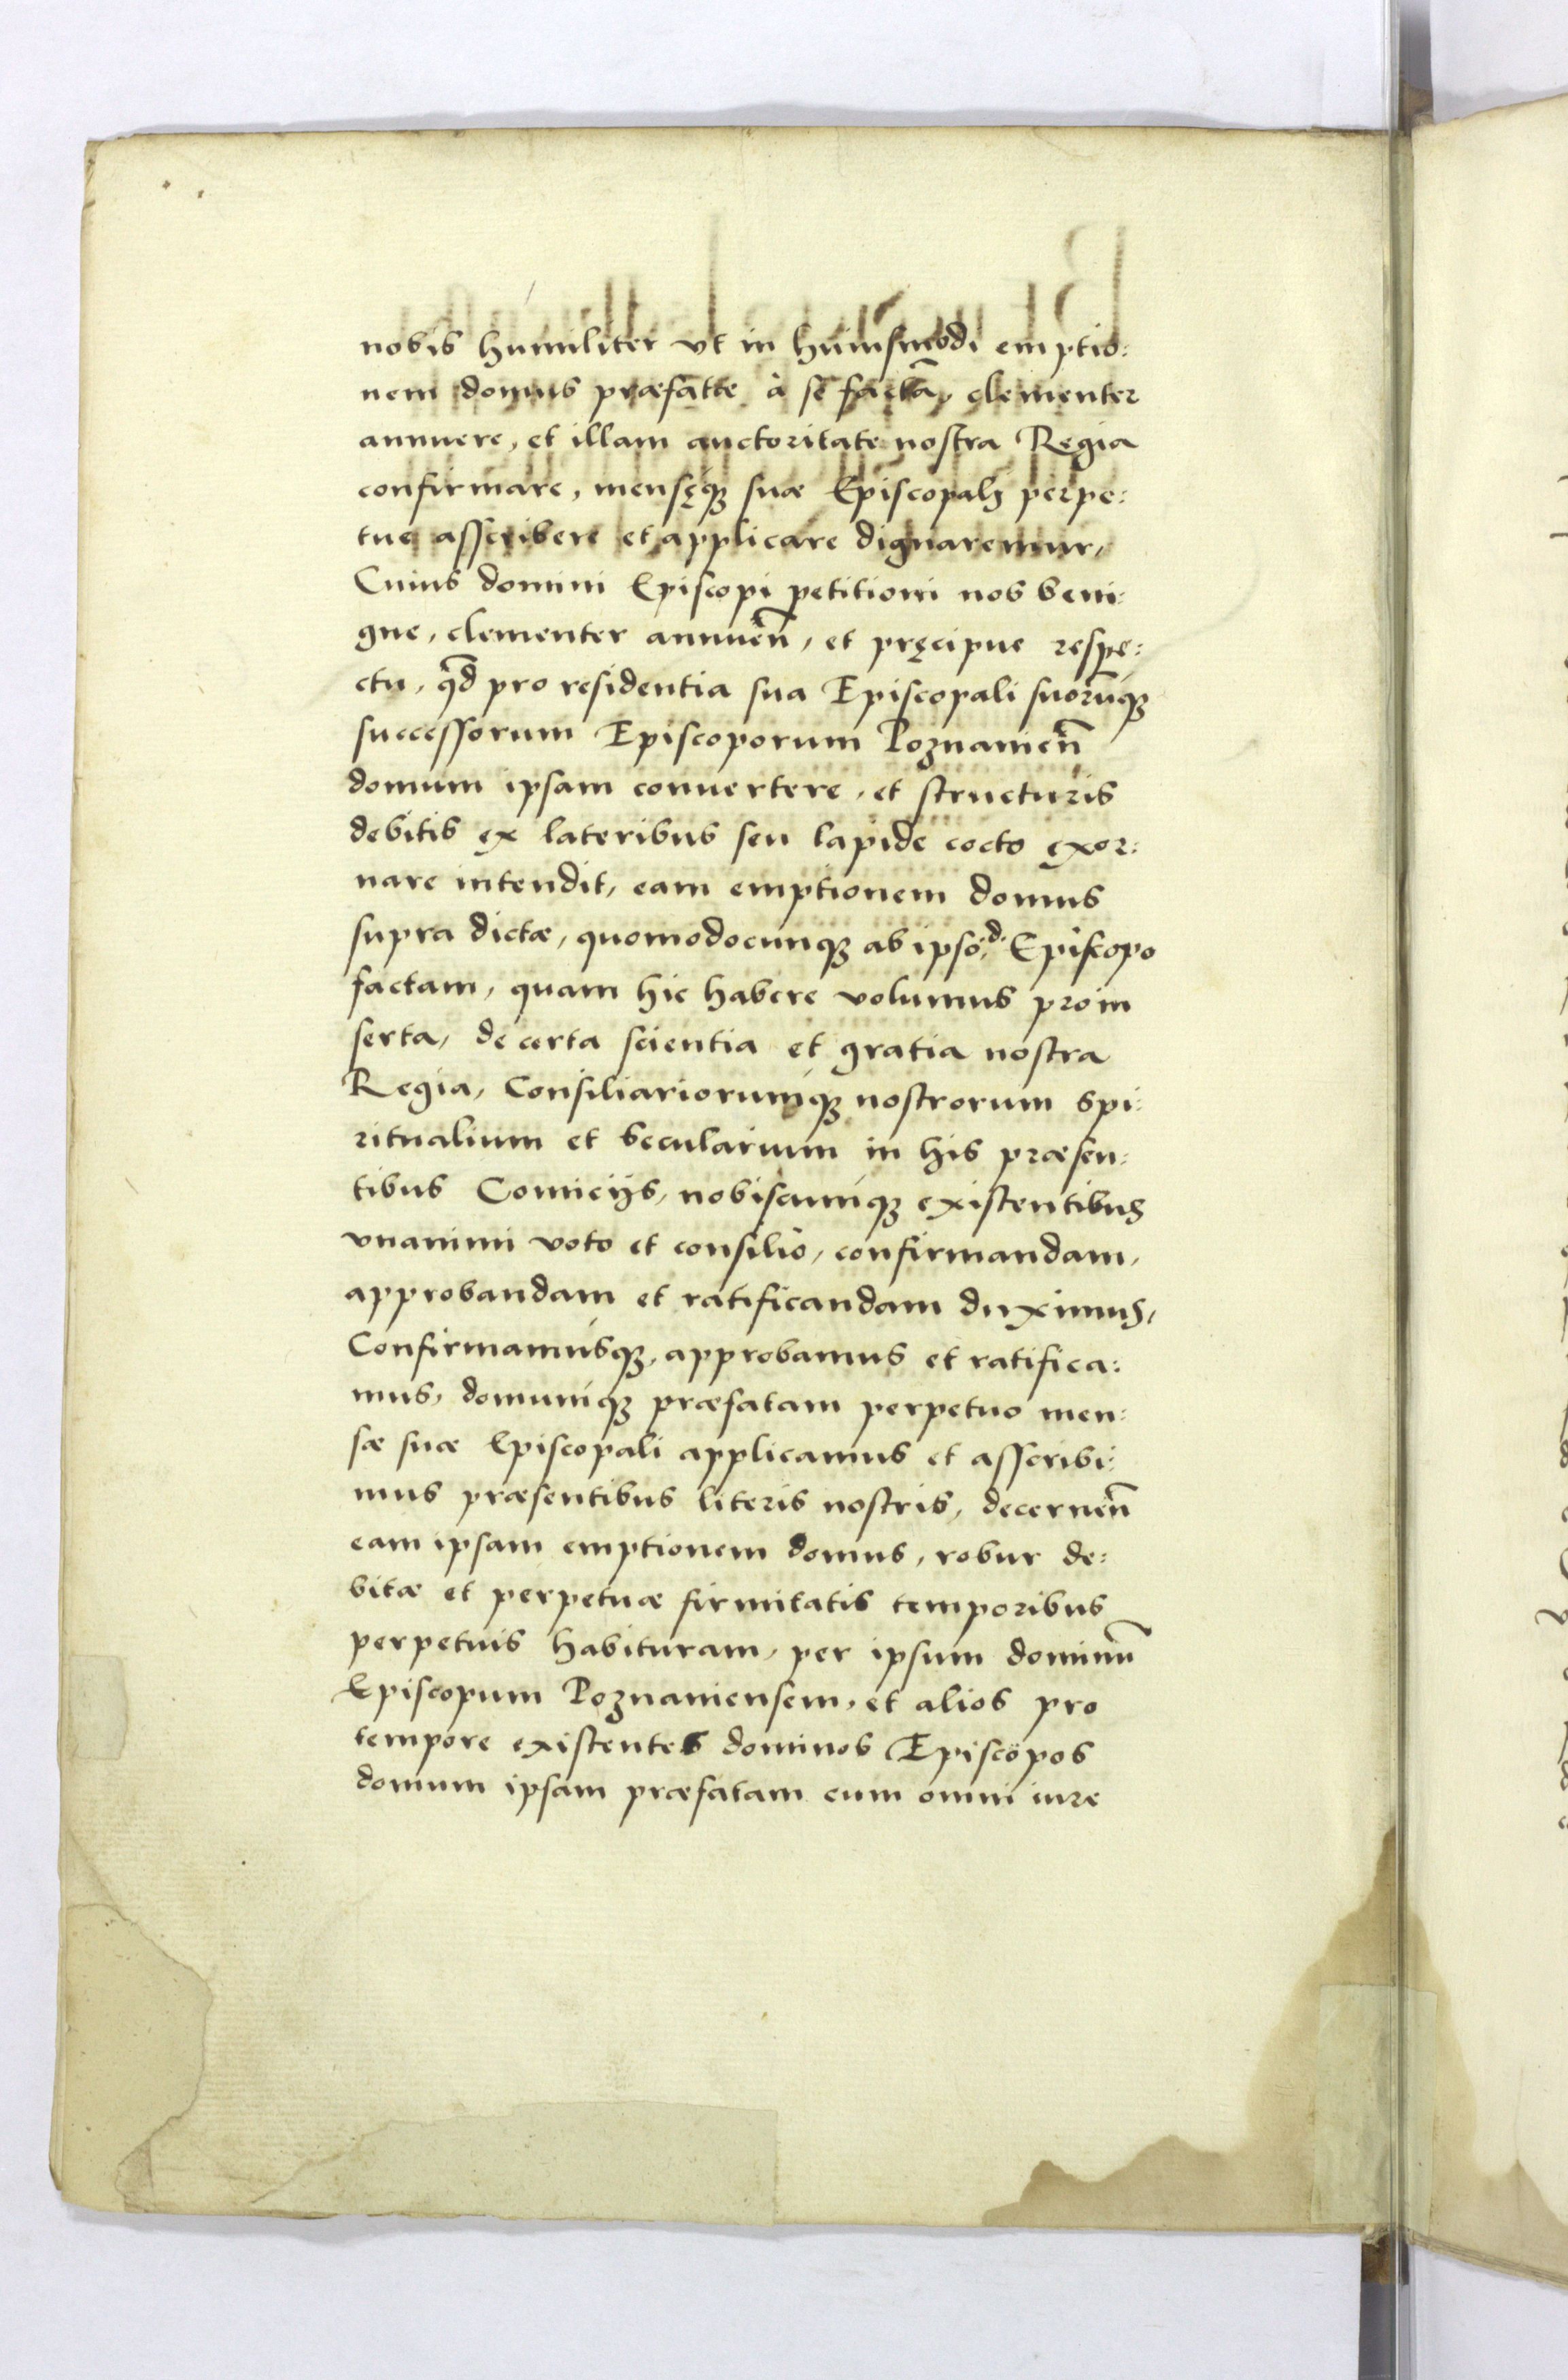 nobis humiliter vt in huiusmodi emptio:
nem domus præfatæ à se factã, clementer
annuere, et illam auctoritate nostra Regia
confirmare, mensęq; suæ Episcopali perpe:
tue asscribere et applicare dignaremur,
Cuius domini Episcopi petitioni nos beni:
gne, clementer annueñ, et pręcipue respe:
ctu, qd̃ pro residentia sua Episcopali suorũq;
successorum Episcoporum Poznanieñ
domum ipsam conuertere, et structuris
debitis ex lateribus seu lapide cocto exor:
nare intendit, eam emptionem domus
supra dictæ, quomodocunq; ab ipso d. Episcopo
factam, quam hic habere volumus pro in
serta, de certa scientia et gratia nostra
Regia, Consiliariorumq; nostrorum spi:
ritualium et secularium in his præsen:
tibus Comicijs, nobiscumq; existentibus
vnanimi voto et consilio, confirmandam,
approbandam et ratificandam duximus,
Confirmamusq;, approbamus et ratifica:
mus, domumq; præfatam perpetuo men:
sæ suæ Episcopali applicamus et asscribi:
mus præsentibus literis nostris, decerneñ
eam ipsam emptionem domus, robur de:
bitæ et perpetuæ firmitatis temporibus
perpetuis habituram, per ipsum dominũ
Episcopum Poznaniensem, et alios pro
tempore existentes dominos Episcopos
domum ipsam præfatam cum omni iure